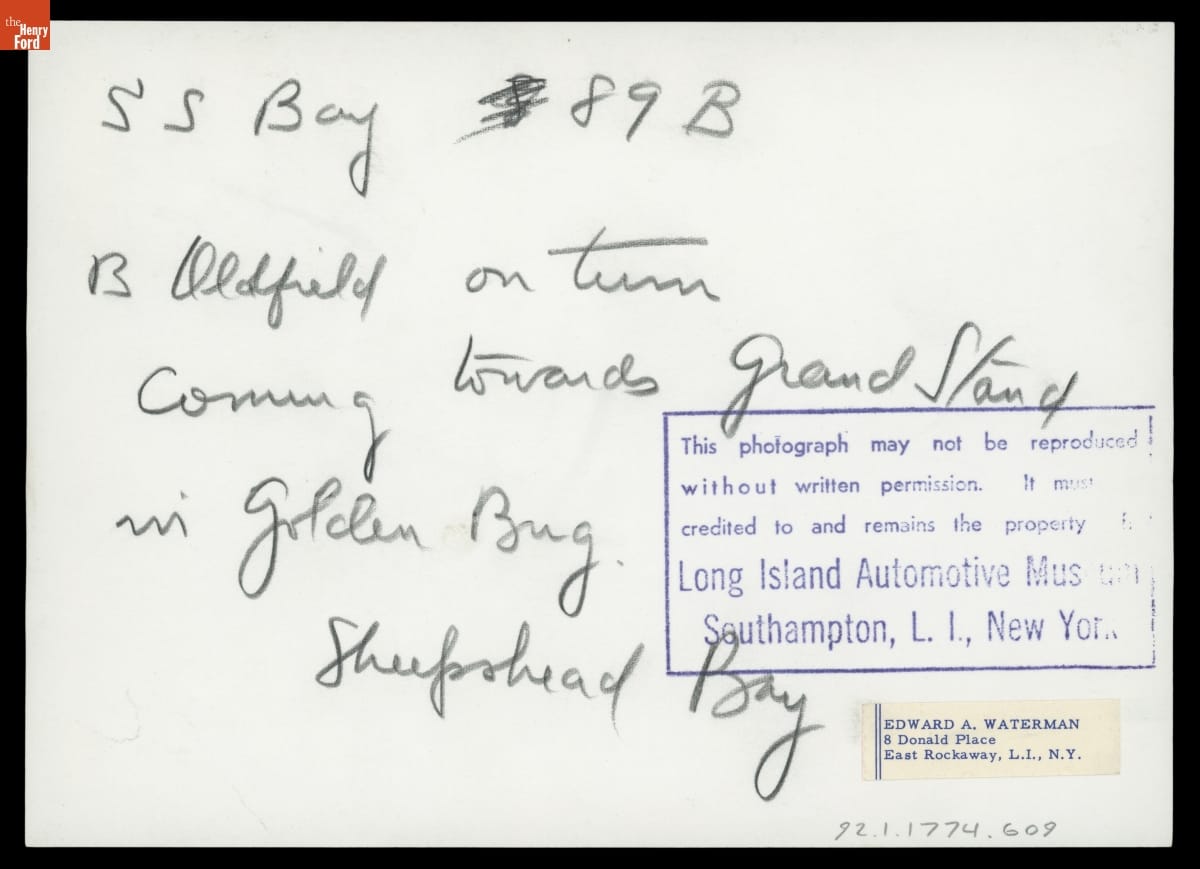 the
Henry
Ford
S S Bay 89 B
B Oldfield on turn
Coming towards Grand Stand
in Golden Bug.
Sheepshead Bay
This photograph may not be reproduced
without written permission. It must
credited to and remains the property
Long Island Automotive Museum
Southampton, L. I., New York
EDWARD A. WATERMAN
8 Donald Place
East Rockaway, L.I., N.Y.
92.1.1774.609